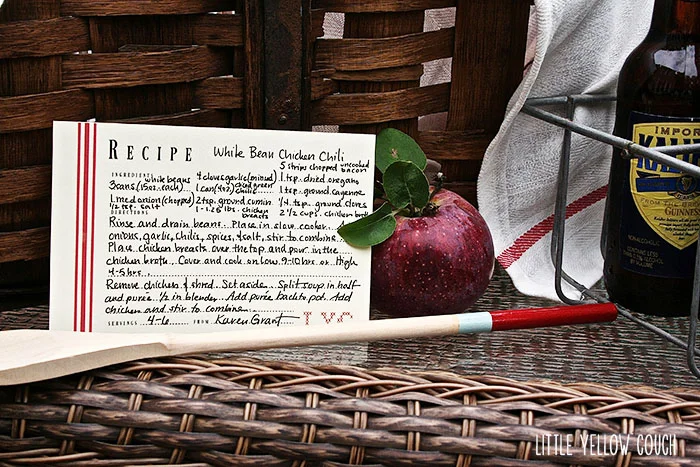 RECIPE White Bean Chicken Chili
INGREDIENTS white beans 4 cloves garlic (minced) 5 strips chopped uncooked bacon
3 cans (15oz. each) 1 can (4oz) diced green chilis 1 tsp. dried oregano
1 med onion (chopped) 2 tsp. ground cumin 1 tsp. ground cayenne
1/2 tsp. salt 1-1.25 lbs chicken breasts 1/4 tsp. ground cloves
DIRECTIONS 2 1/2 cups chicken broth
Rinse and drain beans. Place in slow cooker.
onions, garlic, chilis, spices, & salt, stir to combine.
Place chicken breasts over the top and pour in the
chicken broth. Cover and cook on low 9-10 hrs or High
4-5 hrs.
Remove chicken & shred. Set aside. Split soup in half
and pureé 1/2 in blender. Add pureé back to pot. Add
chicken and stir to combine.
SERVINGS 4-6 FROM Karen Grant LYC
IMPORTED
KAL
GUINNESS
NON-ALCOHOLIC
LITTLE YELLOW COUCH